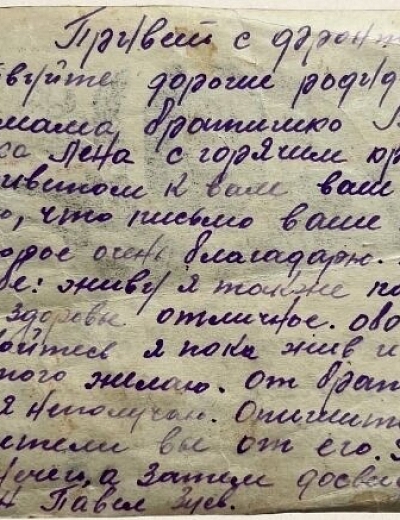 Привет с фронт
вуйте дорогие роди
мама, братишко В
ка Лена с горячим кр
иветом к вам ваш
ю, что письмо ваше
орое очень благадарю.
бе: живу я также по
Здоровье отличное.
ойтесь я пока жив и
того желаю. от брат
я неполучаю. Опишит
ители вы от его.
Нечего, а Затем досви
Павел Зуев.